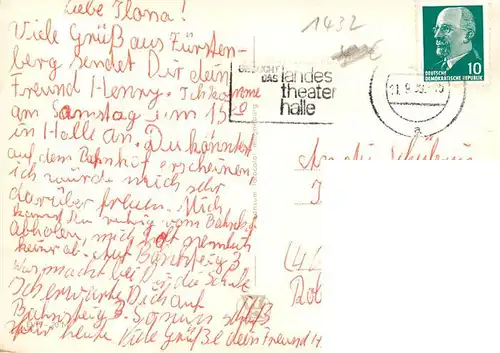 Liebe Ilona!
Viele Grüß aus Fürsten-
berg sendet Dir dein
Freund Henny. Ich komme
am Samstag um 15
in Halle an. Du könntest
auf dem Bahnhof erscheinen
ich würde mich sehr
darüber freuen. Mich
kannst Du ruhig vom Bahnhof
abholen, mich holt nemlich
keiner ab. Auf Bahnsteig 3
Was macht bei Dir die Schule
Ich erwarte Dich auf
Bahnsteig 3. So nun
für heute Viele Grüße dein Freund H
1432
BESUCHT
DAS landes
theater
halle
DEUTSCHE
DEMOKRATISCHE REPUBLIK
10
a
An die
I
(4